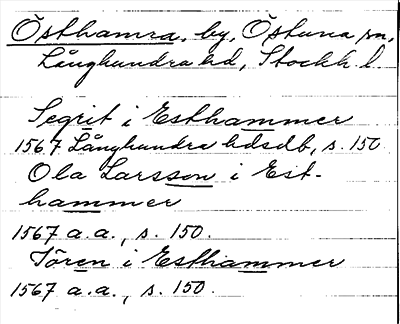 Östhamra, by, Östuna sn,
Långhundra hd, Stockh. l.
Segrit i Esthammer
1567 Långhundra hdsdb, s. 150
Ola Larsson i Est-
hammer
1567 a.a., s. 150.
Jören i Esthammer
1567 a.a., s. 150.